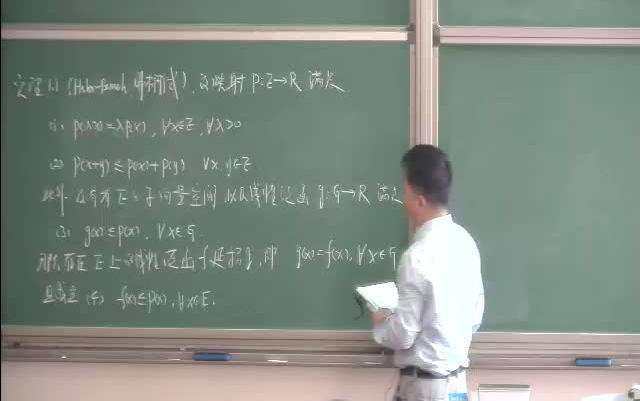 定理 1.1 (Hahn-Banach, 解析形式). 设映射 P: E→R 满足
(1). p(λx)=λp(x), ∀x∈E, ∀λ>0
(2) p(x+y)≤p(x)+p(y) ∀x,y∈E
此外, 设G为E的子向量空间, 以及线性泛函 g: G→R 满足
(3). g(x)≤p(x), ∀x∈G.
那么, 存在E上的线性泛函f延拓g, 即 g(x)=f(x), ∀x∈G
且成立 (4) f(x)≤p(x), ∀x∈E.